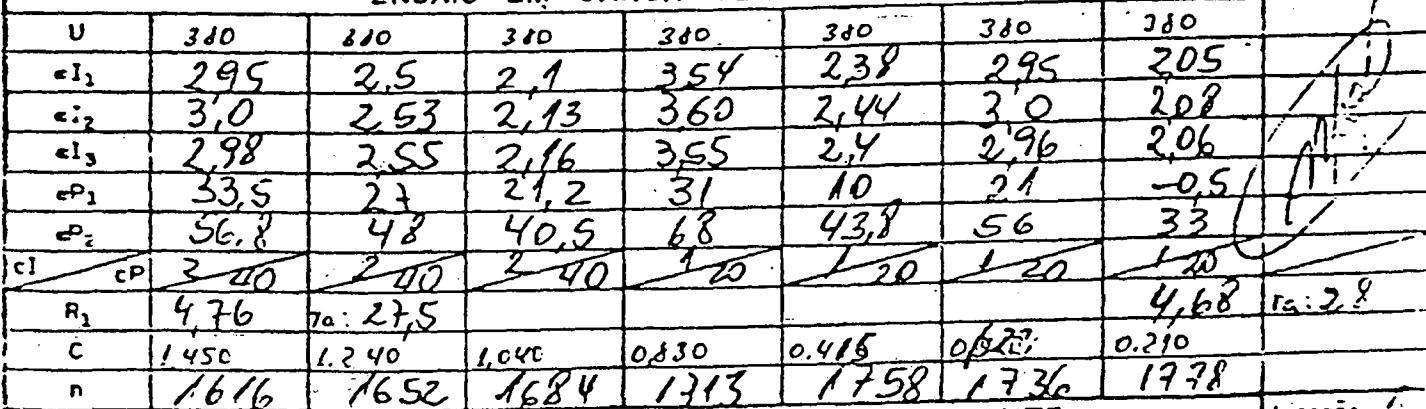 ENSAIO EM CARGA
U 380 380 380 380 380 380 380
cI₁ 2,95 2,5 2,1 3,54 2,38 2,95 2,05
cI₂ 3,0 2,53 2,13 3,60 2,44 3,0 2,08
cI₃ 2,98 2,55 2,16 3,55 2,4 2,96 2,06
cP₁ 33,5 27 21,2 31 10 21 -0,5
cP₂ 56,8 48 40,5 68 43,8 56 33
cI cP 2 40 2 40 2 40 1 20 1 20 1 20 1 20
R₁ 4,76 Ta: 27,5 4,68 Ta: 2,8
C 1.450 1.240 1,040 0,830 0.415 0.210
n 1616 1652 1684 1713 1758 1736 1778